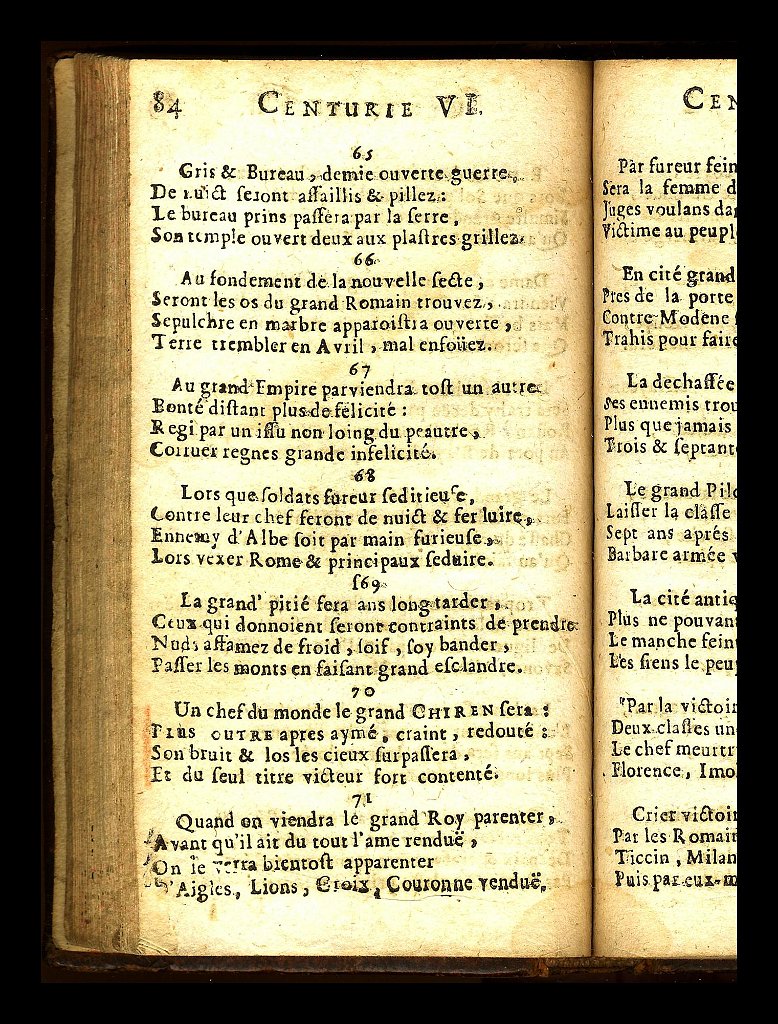 84 CENTURIE VI.
65
Gris & Bureau, demie ouverte guerre,
De nuict seront assaillis & pillez:
Le bureau prins passera par la serre,
Son temple ouvert deux aux plastres grillez.
66
Au fondement de la nouvelle secte,
Seront les os du grand Romain trouvez,
Sepulchre en marbre apparoistra ouverte,
Terre trembler en Avril, mal enfoüez.
67
Au grand Empire parviendra tost un autre
Bonté distant plus de felicité:
Regi par un issu non loing du peautre,
Corruer regnes grande infelicité.
68
Lors que soldats fureur seditieuse,
Contre leur chef feront de nuict & fer luire,
Ennemy d'Albe soit par main furieuse,
Lors vexer Rome & principaux seduire.
569
La grand' pitié fera ans long tarder,
Ceux qui donnoient seront contraints de prendre
Nuds affamez de froid, soif, soy bander,
Passer les monts en faisant grand esclandre.
70
Un chef du monde le grand CHIREN sera:
PLUS OUTRE apres aymé, craint, redouté:
Son bruit & los les cieux surpassera,
Et du seul titre victeur fort contenté.
71
Quand on viendra le grand Roy parenter,
Avant qu'il ait du tout l'ame renduë,
On le verra bientost apparenter
D'Aigles, Lions, Croix, Couronne venduë.
CEN
Par fureur fein
Sera la femme d
Juges voulans da
Victime au peupl
En cité grand
Pres de la porte
Contre Modene
Trahis pour faire
La dechassée
Ses ennemis trou
Plus que jamais
Trois & septant
Le grand Pilo
Laisser la classe
Sept ans aprés
Barbare armée v
La cité antiq
Plus ne pouvan
Le manche fein
Les siens le peu
Par la victoir
Deux classes un
Le chef meurtr
Florence, Imol
Crier victoir
Par les Romain
Ticcin, Milan
Puis par eux-m